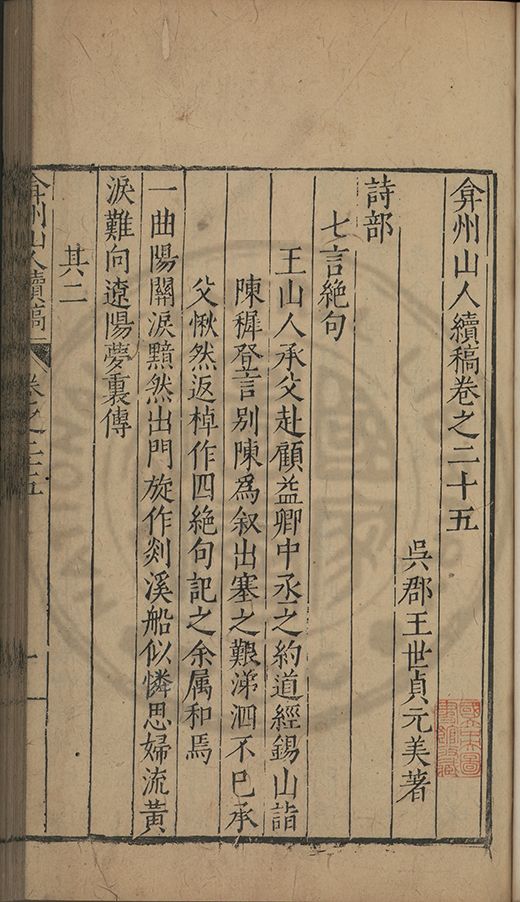 弇州山人續稿卷之二十五
吳郡王世貞元美著
詩部
七言絕句
王山人承父赴顧益卿中丞之約道經錫山詣
陳穉登言別陳爲叙出塞之艱涕泗不已承
父愀然返棹作四絕句記之余属和焉
一曲陽關淚黯然出門旋作剡溪船似憐思婦流黃
淚難向遼陽夢裏傳
其二
弇州山人續稿
卷之二十五
一